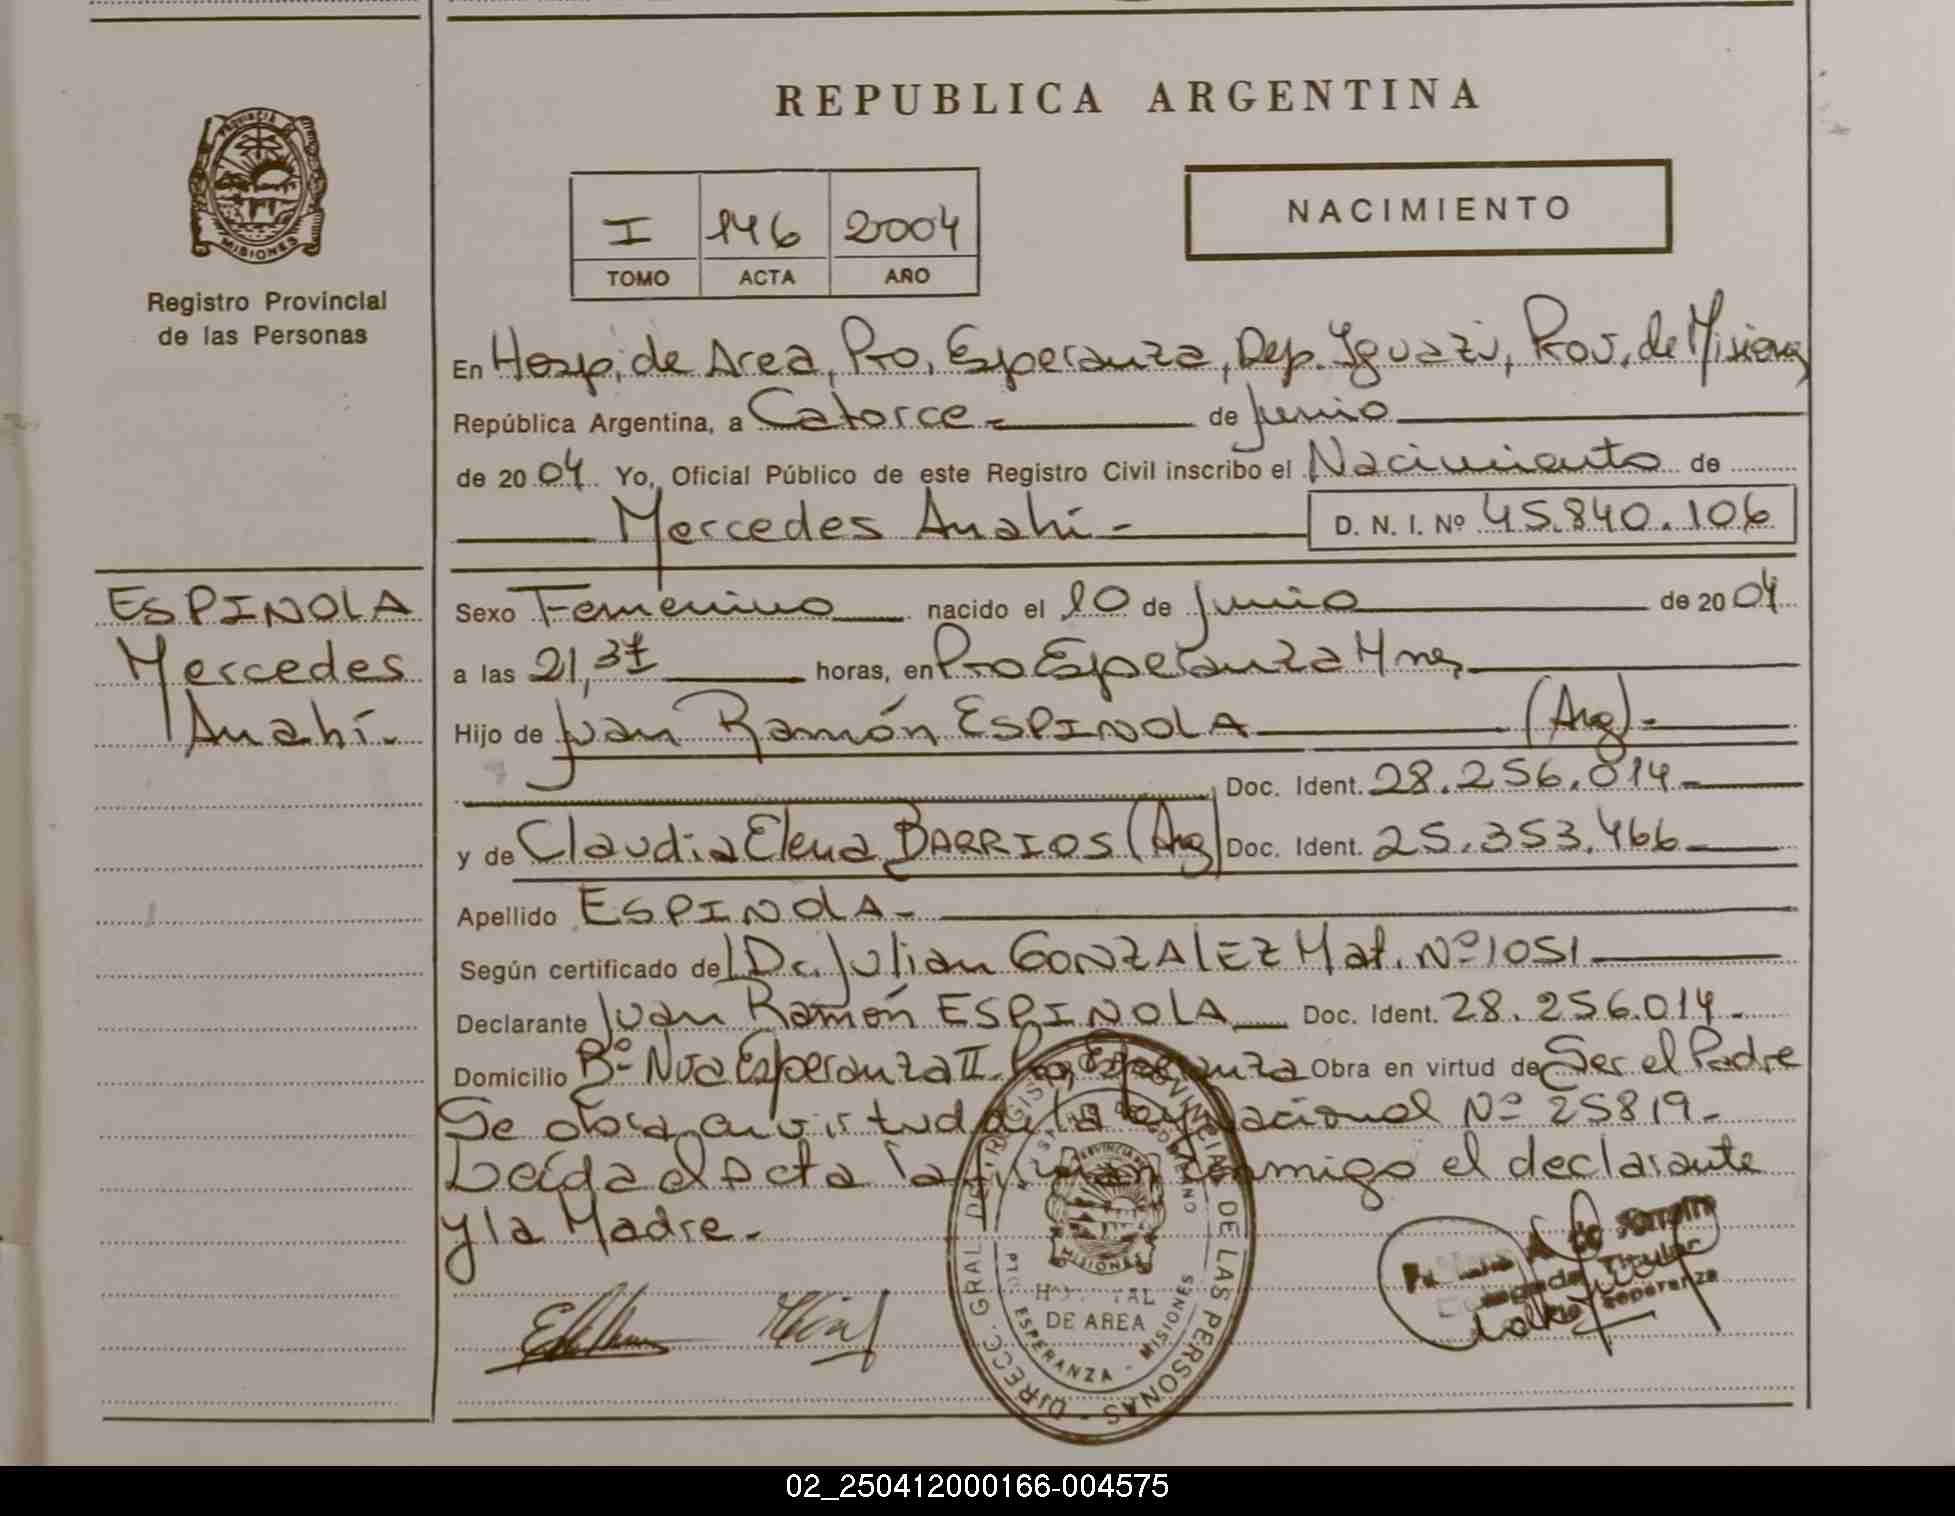 REPUBLICA ARGENTINA
PROVINCIA DE MISIONES
Registro Provincial
de las Personas
I 146 2004
TOMO ACTA AÑO
NACIMIENTO
En Hosp. de Area, Pto. Esperanza, Dep. Iguazú, Prov. de Misiones
República Argentina, a Catorce.- de junio
de 2004 Yo, Oficial Público de este Registro Civil inscribo el Nacimiento de
Mercedes Anahí.- D. N. I. Nº 45.840.106
ESPINOLA
Mercedes
Anahí.-
Sexo Femenino nacido el 10 de junio de 2004
a las 21,37 horas, en Pto Esperanza Mnes,
Hijo de Juan Ramón ESPINOLA (Arg).-
Doc. Ident. 28.256.014.-
y de Claudia Elena BARRIOS (Arg) Doc. Ident. 25.353.466.-
Apellido ESPINOLA.-
Según certificado del Dr. Julian GONZALEZ Mat. Nº 1051
Declarante Juan Ramón ESPINOLA Doc. Ident. 28.256.014.-
Domicilio Bº Nva Esperanza II. Pto, Esperanza Obra en virtud de Ser el Padre
Se obra en virtud de la Ley Nacional Nº 25819.-
Leída el Acta la firman conmigo el declarante
y la Madre.-
DIRECC. GRAL. DEL REGISTRO PROVINCIAL DE LAS PERSONAS
MINISTERIO DE GOBIERNO
PROVINCIA
MISIONES
HOSPITAL
DE AREA
PTO. ESPERANZA - MISIONES
Titular
Esperanza
02_250412000166-004575